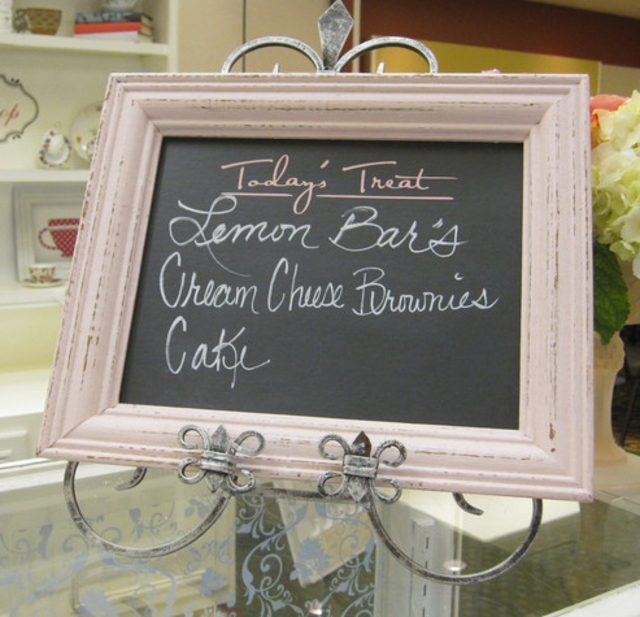 Today's Treat
Lemon Bar's
Cream Cheese Brownies
Cake